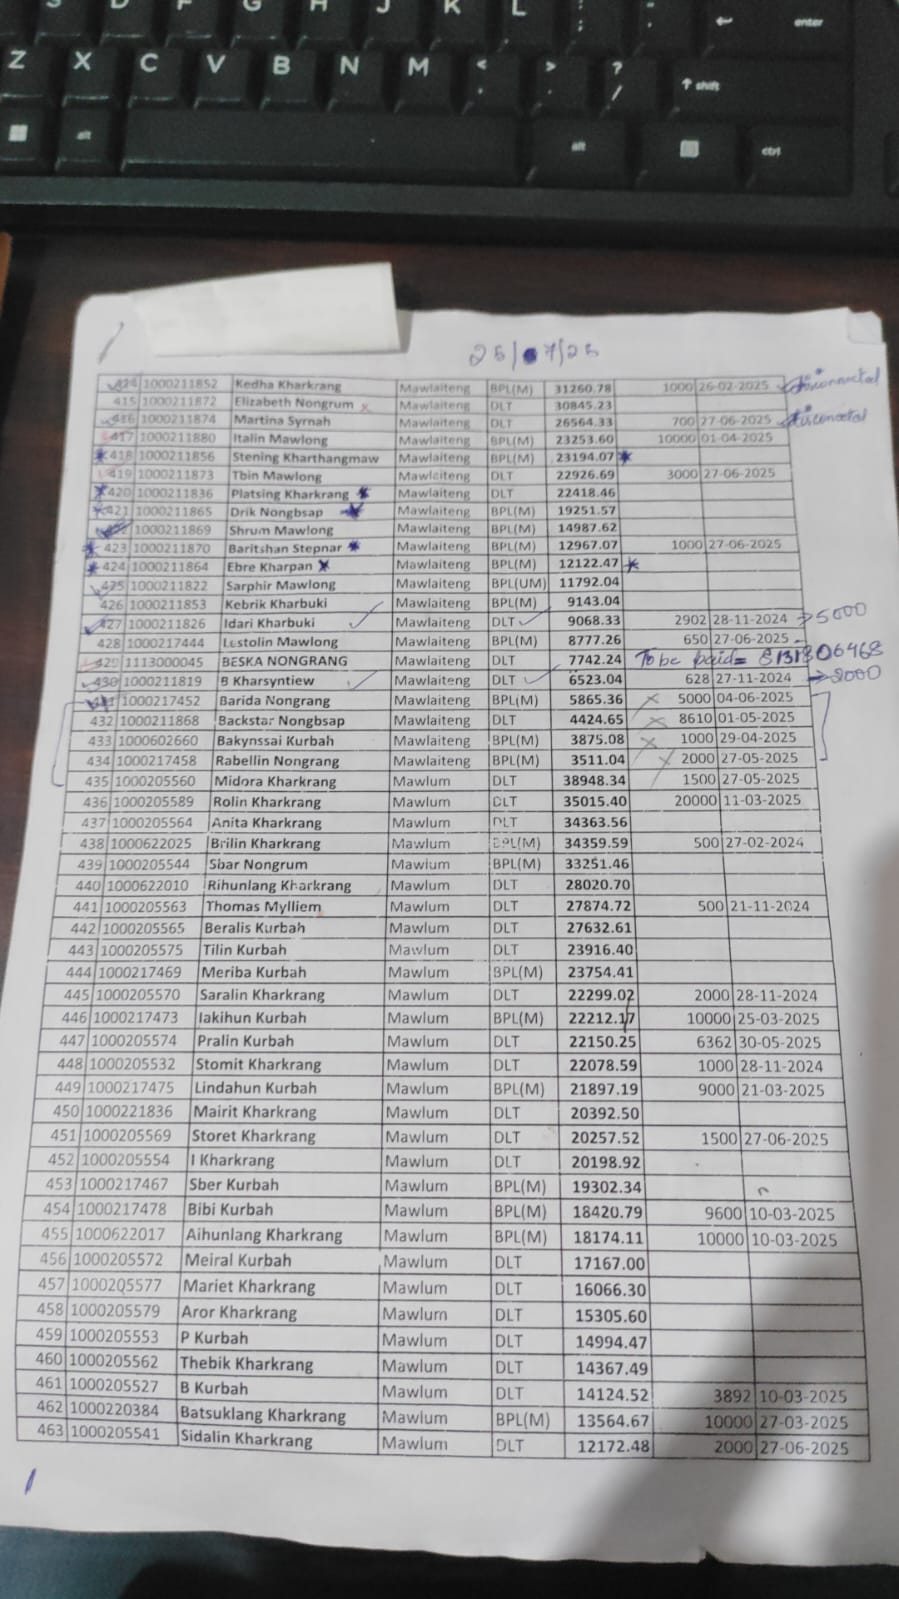 S D F G H J K L : ; " ' enter
Z X C V B N M < , > . ? / shift
alt alt ctrl
25/07/25
414 1000211852 Kedha Kharkrang Mawlaiteng BPL(M) 31260.78 1000 26-02-2025 disconnectal
415 1000211872 Elizabeth Nongrum x Mawlaiteng DLT 30845.23
416 1000211874 Martina Syrnah Mawlaiteng DLT 26564.33 700 27-06-2025 disconnectal
417 1000211880 Italin Mawlong Mawlaiteng BPL(M) 23253.60 10000 01-04-2025
418 1000211856 Stening Kharthangmaw Mawlaiteng BPL(M) 23194.07
419 1000211873 Tbin Mawlong Mawlaiteng DLT 22926.69 3000 27-06-2025
420 1000211836 Platsing Kharkrang Mawlaiteng DLT 22418.46
421 1000211865 Drik Nongbsap Mawlaiteng BPL(M) 19251.57
1000211869 Shrum Mawlong Mawlaiteng BPL(M) 14987.62
423 1000211870 Baritshan Stepnar Mawlaiteng BPL(M) 12967.07 1000 27-06-2025
424 1000211864 Ebre Kharpan Mawlaiteng BPL(M) 12122.47
425 1000211822 Sarphir Mawlong Mawlaiteng BPL(UM) 11792.04
426 1000211853 Kebrik Kharbuki Mawlaiteng BPL(M) 9143.04
427 1000211826 Idari Kharbuki Mawlaiteng DLT 9068.33 2902 28-11-2024 → 5000
428 1000217444 Lestolin Mawlong Mawlaiteng BPL(M) 8777.26 650 27-06-2025
429 1113000045 BESKA NONGRANG Mawlaiteng DLT 7742.24 To be paid=
430 1000211819 B Kharsyntiew Mawlaiteng DLT 6523.04 628 27-11-2024 → 2000
1000217452 Barida Nongrang Mawlaiteng BPL(M) 5865.36 x 5000 04-06-2025
432 1000211868 Backstar Nongbsap Mawlaiteng DLT 4424.65 x 8610 01-05-2025
433 1000602660 Bakynssai Kurbah Mawlaiteng BPL(M) 3875.08 x 1000 29-04-2025
434 1000217458 Rabellin Nongrang Mawlaiteng BPL(M) 3511.04 x 2000 27-05-2025
435 1000205560 Midora Kharkrang Mawlum DLT 38948.34 1500 27-05-2025
436 1000205589 Rolin Kharkrang Mawlum DLT 35015.40 20000 11-03-2025
437 1000205564 Anita Kharkrang Mawlum DLT 34363.56
438 1000622025 Brilin Kharkrang Mawlum BPL(M) 34359.59 500 27-02-2024
439 1000205544 Sbar Nongrum Mawlum BPL(M) 33251.46
440 1000622010 Rihunlang Kharkrang Mawlum DLT 28020.70
441 1000205563 Thomas Mylliem Mawlum DLT 27874.72 500 21-11-2024
442 1000205565 Beralis Kurbah Mawlum DLT 27632.61
443 1000205575 Tilin Kurbah Mawlum DLT 23916.40
444 1000217469 Meriba Kurbah Mawlum BPL(M) 23754.41
445 1000205570 Saralin Kharkrang Mawlum DLT 22299.02 2000 28-11-2024
446 1000217473 Iakihun Kurbah Mawlum BPL(M) 22212.17 10000 25-03-2025
447 1000205574 Pralin Kurbah Mawlum DLT 22150.25 6362 30-05-2025
448 1000205532 Stomit Kharkrang Mawlum DLT 22078.59 1000 28-11-2024
449 1000217475 Lindahun Kurbah Mawlum BPL(M) 21897.19 9000 21-03-2025
450 1000221836 Mairit Kharkrang Mawlum DLT 20392.50
451 1000205569 Storet Kharkrang Mawlum DLT 20257.52 1500 27-06-2025
452 1000205554 I Kharkrang Mawlum DLT 20198.92
453 1000217467 Sber Kurbah Mawlum BPL(M) 19302.34
454 1000217478 Bibi Kurbah Mawlum BPL(M) 18420.79 9600 10-03-2025
455 1000622017 Aihunlang Kharkrang Mawlum BPL(M) 18174.11 10000 10-03-2025
456 1000205572 Meiral Kurbah Mawlum DLT 17167.00
457 1000205577 Mariet Kharkrang Mawlum DLT 16066.30
458 1000205579 Aror Kharkrang Mawlum DLT 15305.60
459 1000205553 P Kurbah Mawlum DLT 14994.47
460 1000205562 Thebik Kharkrang Mawlum DLT 14367.49
461 1000205527 B Kurbah Mawlum DLT 14124.52 3892 10-03-2025
462 1000220384 Batsuklang Kharkrang Mawlum BPL(M) 13564.67 10000 27-03-2025
463 1000205541 Sidalin Kharkrang Mawlum DLT 12172.48 2000 27-06-2025